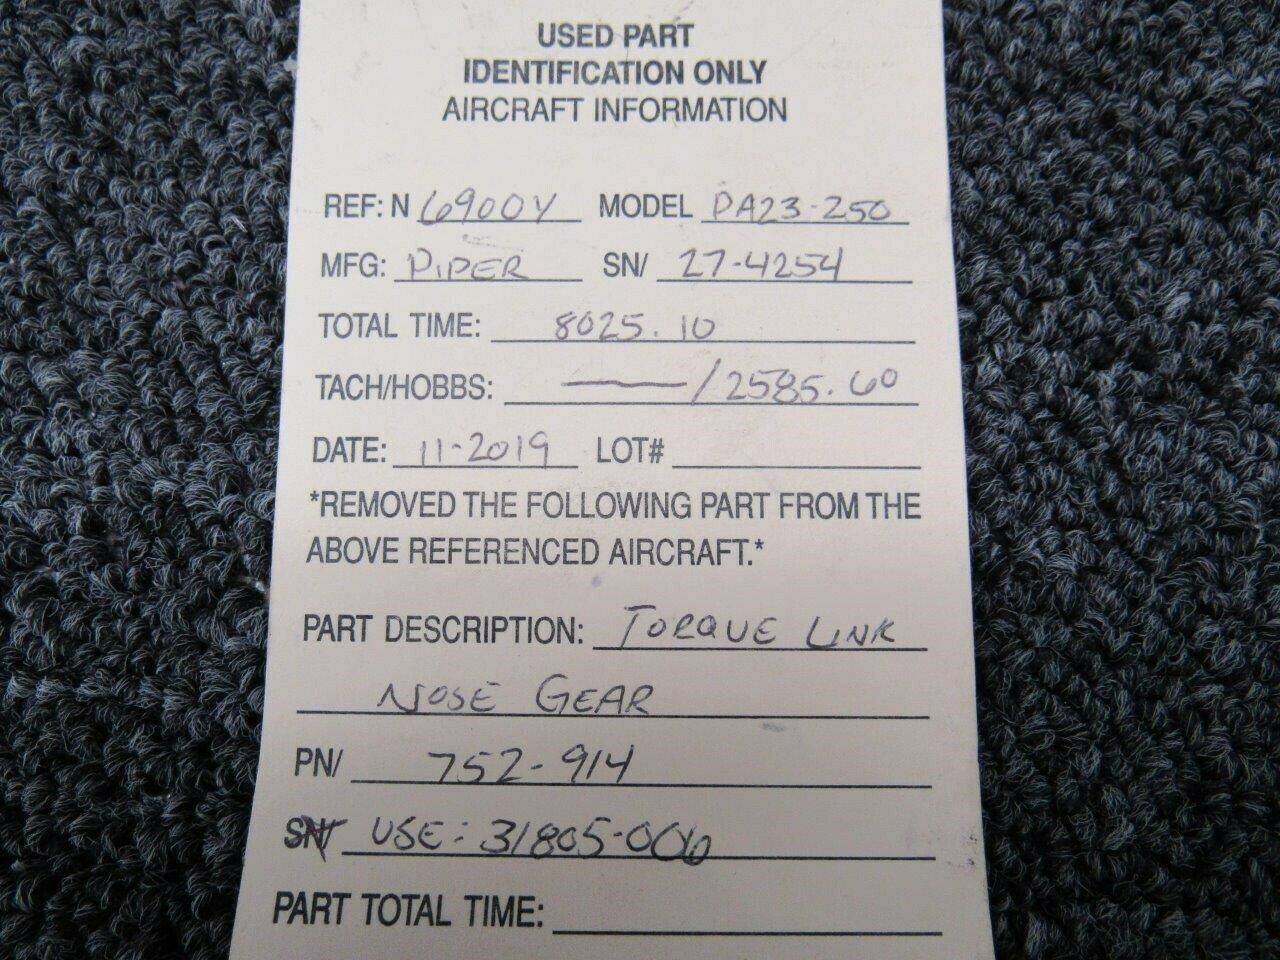 USED PART
IDENTIFICATION ONLY
AIRCRAFT INFORMATION
REF: N 6900Y MODEL PA23-250
MFG: PIPER SN/ 27-4254
TOTAL TIME: 8025.10
TACH/HOBBS: —/2585.60
DATE: 11-2019 LOT#
*REMOVED THE FOLLOWING PART FROM THE
ABOVE REFERENCED AIRCRAFT.*
PART DESCRIPTION: TORQUE LINK
NOSE GEAR
PN/ 752-914
SN/ USE: 31805-006
PART TOTAL TIME: